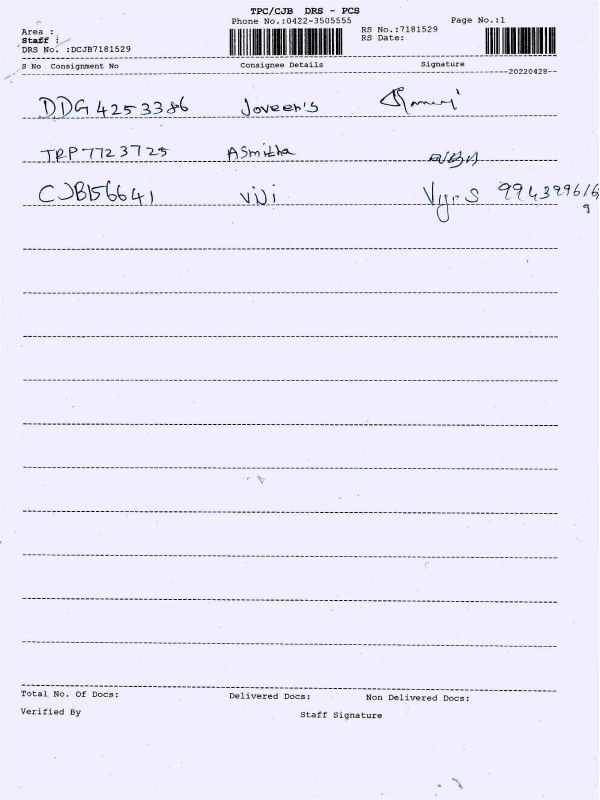 TPC/CJB DRS - PCS
Phone No.:0422-3505555 Page No.:1
Area :
Staff :
RS No.:7181529
RS Date:
DRS No. :DCJB7181529
S No Consignment No Consignee Details Signature
20220428
DDG4253386 Joveen's
TRP7723725 ASmitha
CJB156641 Viji 9943996169
Total No. Of Docs: Delivered Docs: Non Delivered Docs:
Verified By Staff Signature